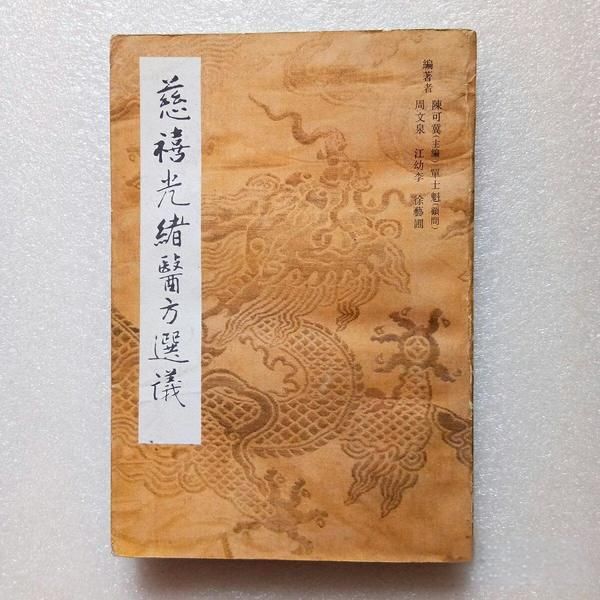 編著者 陳可冀(主編) 單士魁(顧問)
周文泉 江幼李 徐藝圃
慈禧光緒醫方選議